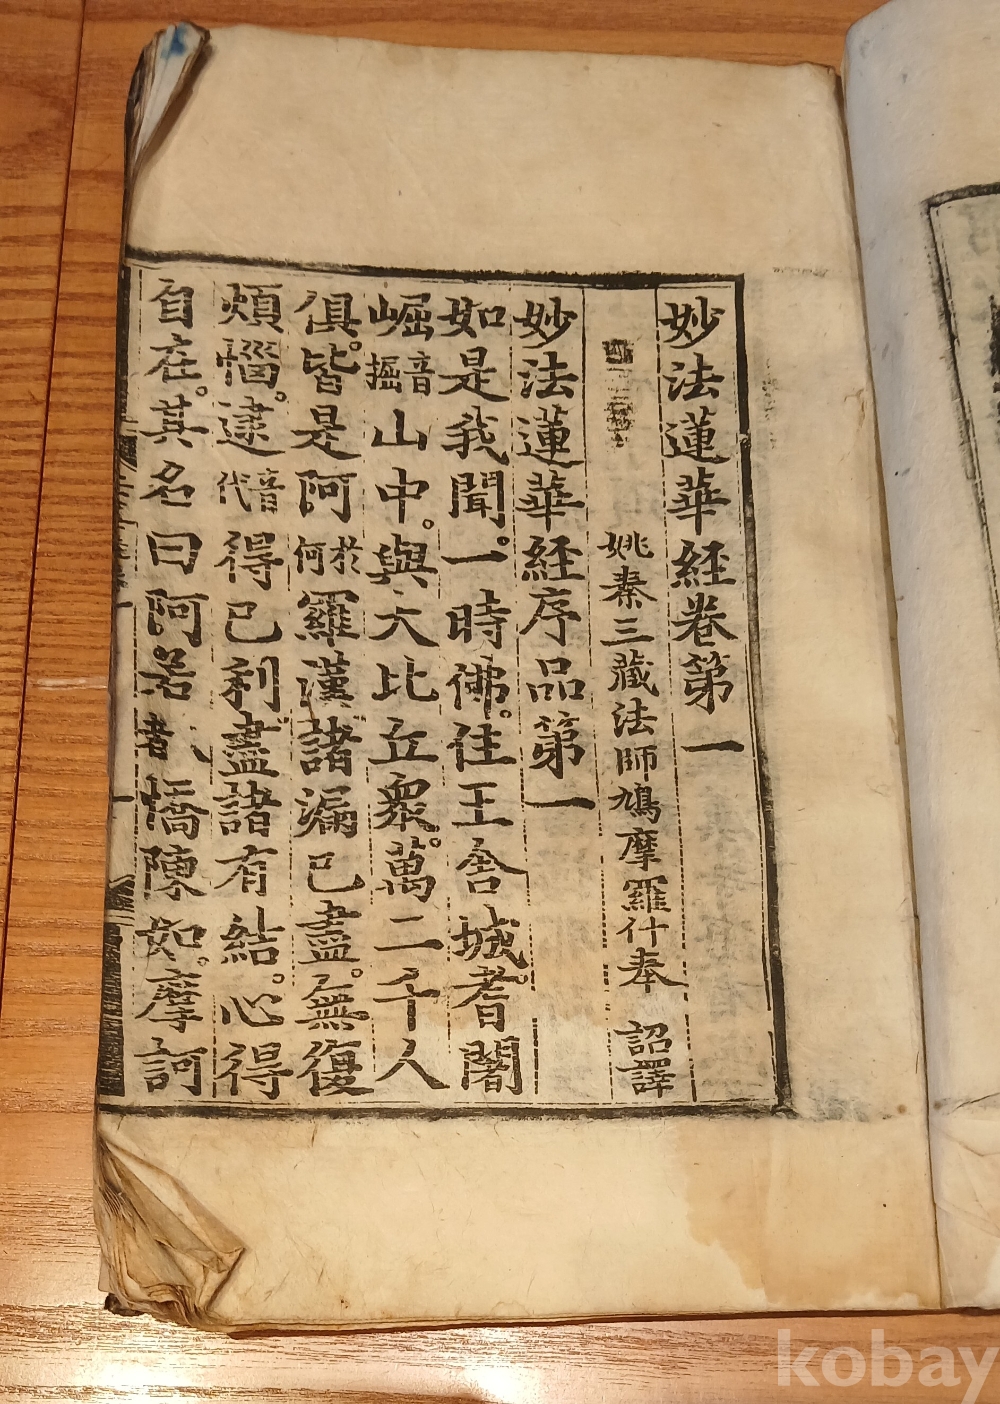 妙法蓮華経卷第一
姚秦三藏法師鳩摩羅什奉 詔譯
妙法蓮華経序品第一
如是我聞。一時佛。住王舍城。耆闍
崛音掘山中。與大比丘衆。萬二千人
俱。皆是阿於何羅漢諸漏已盡。無復
煩惱。逮音代得已利盡諸有結。心得
自在。其名曰阿若憍陳如。摩訶
kobay